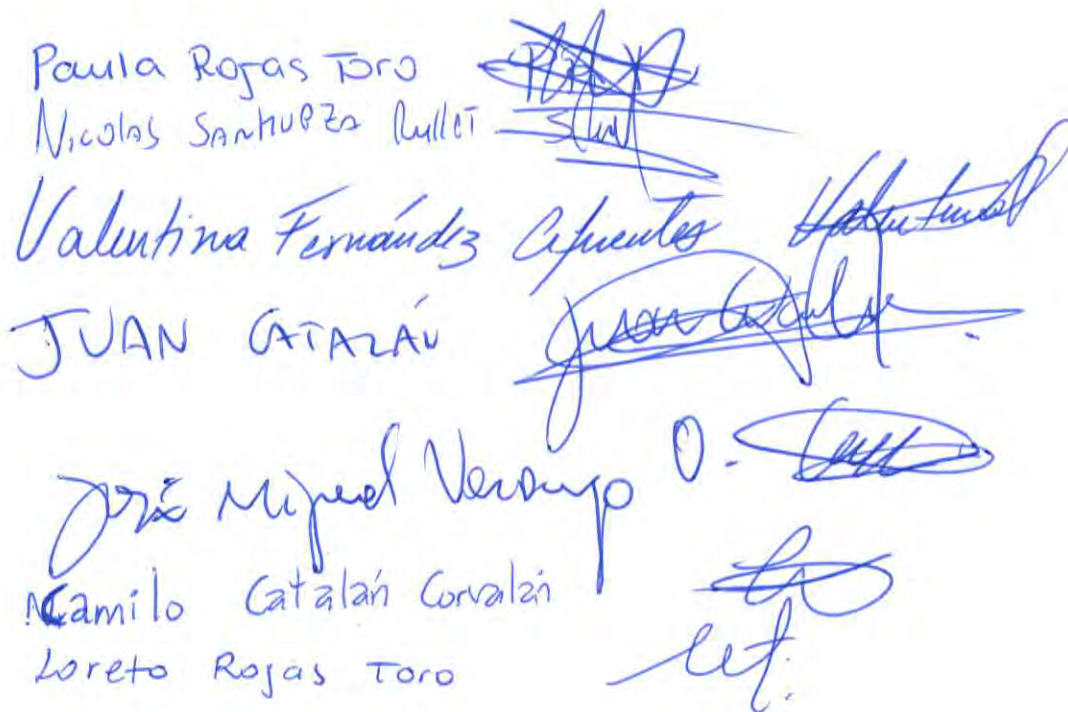 Paula Rojas Toro
Nicolas Sanhueza
Valentina Fernández Cifuentes Valentina
JUAN CATALÁN Juan
José Miguel Verdugo O.
Camilo Catalán Corvalán
Loreto Rojas Toro